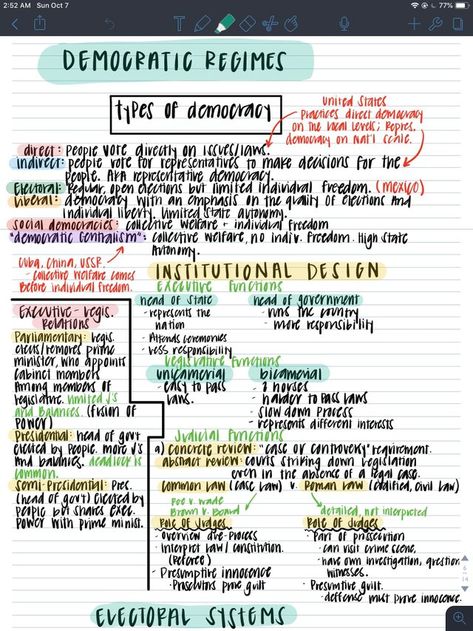 2:52 AM Sun Oct 7
77%
DEMOCRATIC REGIMES
types of democracy
United States
Practices direct democracy
on the local levels; Repres.
democracy on Nat'l scale.
direct: People vote directly on issues/laws.
indirect: people vote for representatives to make decisions for the
people. AKA representative democracy.
Electoral: Regular, open elections but limited individual freedom. (MEXICO)
Liberal: democracy with an emphasis on the quality of elections and
individual liberty. Limited state autonomy.
Social democracies: collective welfare + individual freedom
"democratic centralism": collective welfare, no indiv. freedom. High State
Autonomy.
Cuba, China, USSR.
- collective welfare comes
before individual freedom.
INSTITUTIONAL DESIGN
Executive functions
head of State
- represents the
nation
- Attends ceremonies
- less responsibility
head of government
- runs the country
- more responsibility
Legislative functions
unicameral
- easy to pass
laws.
bicameral
- 2 houses
- harder to pass laws
- slow down process
- represents different interests
Executive-Legis.
Relations
Parliamentary: legis.
elects/removes prime
minister, who appoints
cabinet members
among members of
legislative. limited √'s
and balances. (fusion of
power)
Presidential: head of govt
elected by people. more √'s
and balances. deadlock is
common.
Semi-Presidential: Pres.
(head of govt) elected by
people but shares exec.
power with prime minis.
Judicial functions
a) Concrete review: "case or controversy" requirement.
abstract review: courts striking down legislation
even in the absence of a legal case.
Common law (case law) v. Roman law (codified, civil law)
Roe v. Wade
Brown v. Board
detailed, not interpreted
Role of Judges
- overview due-process
- interpret law / constitution.
(referee)
- Presumptive innocence
- Prosecutors prove guilt
Role of Judges
- Part of prosecution
- can visit crime scene,
- have own investigation, question
witnesses.
- Presumptive guilt.
- defense must prove innocence.
6
14
ELECTORAL SYSTEMS